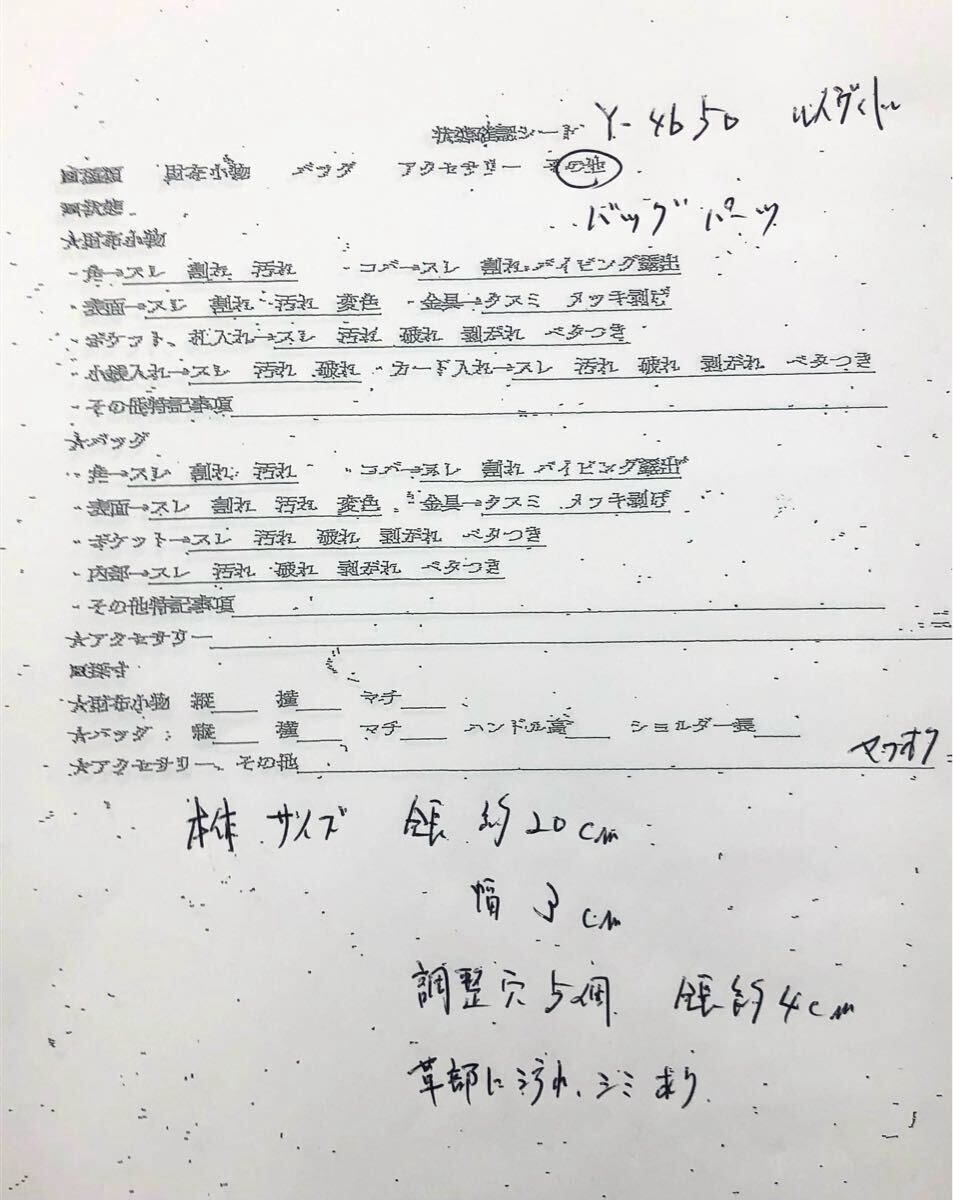 状態確認シート Y-4650 ルイヴィトン
□種類 財布小物 バッグ アクセサリー その他
□状態 バッグ パーツ
★財布小物
・角→スレ 割れ 汚れ ・コバ→スレ 割れ パイピング露出
・表面→スレ 割れ 汚れ 変色 ・金具→クスミ メッキ剥げ
・ポケット、札入れ→スレ 汚れ 破れ 剥がれ ベタつき
・小銭入れ→スレ 汚れ 破れ ・カード入れ→スレ 汚れ 破れ 剥がれ ベタつき
・その他特記事項
★バッグ
・角→スレ 割れ 汚れ ・コバ→スレ 割れ パイピング露出
・表面→スレ 割れ 汚れ 変色 ・金具→クスミ メッキ剥げ
・ポケット→スレ 汚れ 破れ 剥がれ ベタつき
・内部→スレ 汚れ 破れ 剥がれ ベタつき
・その他特記事項
★アクセサリー
□採寸
★財布小物 縦 横 マチ
★バッグ 縦 横 マチ ハンドル高 ショルダー長
★アクセサリー、その他
本体 サイズ 全長 約20cm
幅 3cm
調整穴5個 全長約4cm
革部に汚れ、シミあり